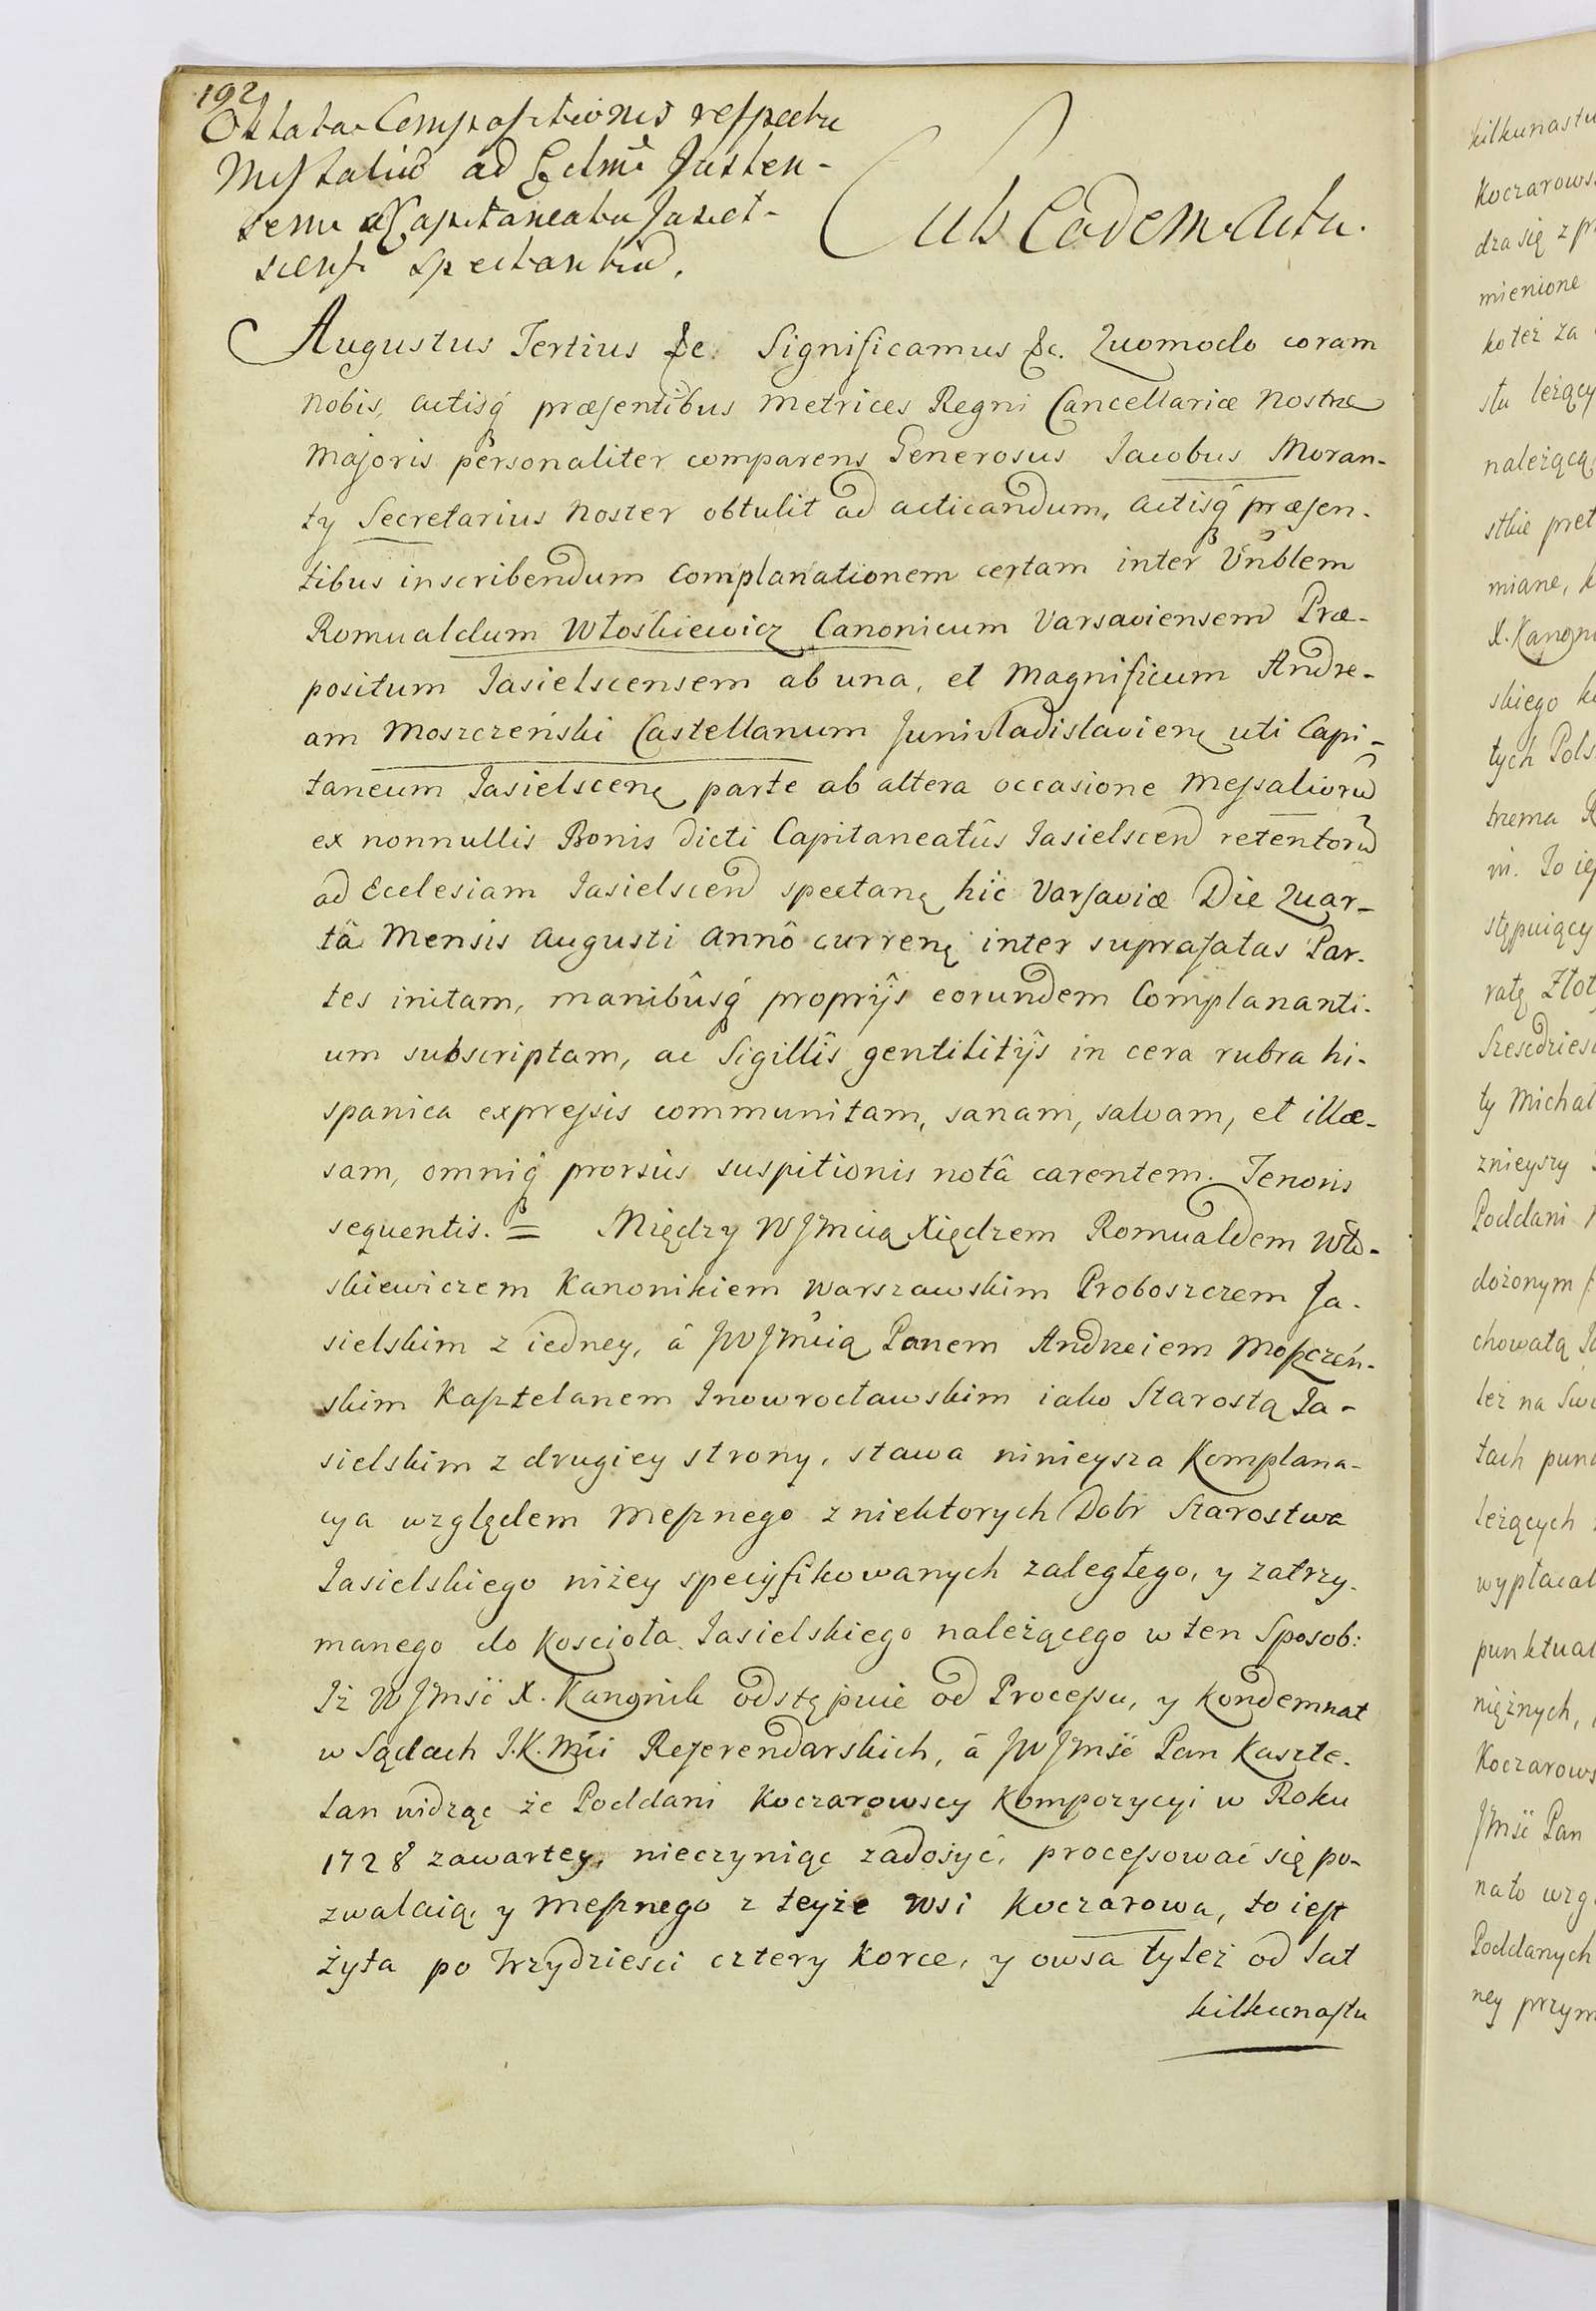 192
Oblata Compositionis respectu
Missalium ad Ecclm̃ Jasien-
sem a Capitaneatu Jasiel-
scensi spectantium.
Sub Eodem Actu.
Augustus Tertius &c. Significamus &c. Quomodo coram
nobis, actisq́ præsentibus Metrices Regni Cancellariæ Nostræ
Majoris personaliter comparens Generosus Jacobus Moran-
ty Secretarius Noster obtulit ad acticandum, actisq́ præsen-
tibus inscribendum Complanationem certam inter Vñblem
Romualdum Włoskiewicz Canonicum Varsaviensem Præ-
positum Jasielscensem ab una, et Magnificum Andre-
am Moszczeński Castellanum Junivladislavienę uti Capi-
taneum Jasielscenę parte ab altera occasione Messaliorũ
ex nonnullis Bonis dicti Capitaneatûs Jasielscen̄ retentorũ
ad Ecclesiam Jasielscen̄ spectanę hic Varsaviæ Die Quar-
tâ Mensis Augusti Annô currenę inter suprafatas Par-
tes initam, manibûsq́ proprijs eorundem Complananti-
um subscriptam, ac Sigillîs gentilitijs in cera rubra hi-
spanica expressis communitam, sanam, salvam, et illæ-
sam, omniq́ prorsùs suspitionis notâ carentem. Tenoris
sequentis. = Między WJmcią Xiędzem Romualdem Wło-
skiewiczem Kanonikiem Warszawskim Proboszczem Ja-
sielskim z iedney, â JWJmcią Panem Andrzeiem Moszczeń-
skim Kasztelanem Inowrocławskim iako Starostą Ja-
sielskim z drugiey strony, stawa ninieysza Komplana-
cya względem Mesznego z niektorych Dobr Starostwa
Jasielskiego niżey specyfikowanych zaległego, y zatrzy-
manego do Kościoła Jasielskiego należącego w ten Sposob:
Iż WJmść X. Kanonik odstępuie od Processu, y Kondemnat
w Sądach J.K.Mći Referendarskich, â JWJmść Pan Kaszte-
lan widząc że Poddani Koczarowscy Kompozycyi w Roku
1728 zawartey, nieczyniąc zadosyć, processować się po-
zwalaią, y Mesznego z teyże Wsi Koczarowa, to iest
żyta po trzydzieści cztery Korce, y owsa tyleż od lat
kilkunastu
kilkunastu
Koczarows
dza się z pr
mienione
ko też za
stu leżący
należącą
stkie pret
miane, k
X. Kanon
skiego k
tych Pols
trzema R
stępuiący
ratę Złot
Sześćdzies
ty Michał
znieyszy
Poddani
dożonym
chowałą
też na Świ
tach punc
leżących
wypłacał
punktual
niężnych,
Koczarows
Jmść Pan
na to wzg
Poddanych
ney przym